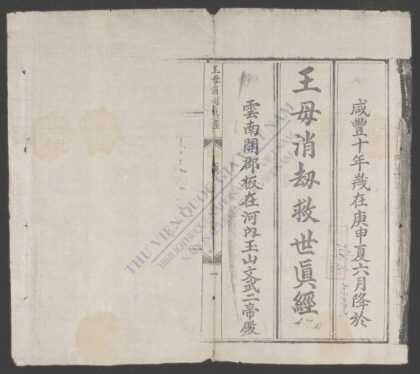 咸豐十年歲在庚申夏六月降於
王母消劫救世眞經
雲南開郡板在河內玉山文武二帝殿
王母消劫救世眞經
一
THƯ VIỆN QUỐC GIA VIỆT NAM
BIBLIOTHÈQUE NATIONALE DU VIETNAM
NATIONAL LIBRARY OF VIETNAM